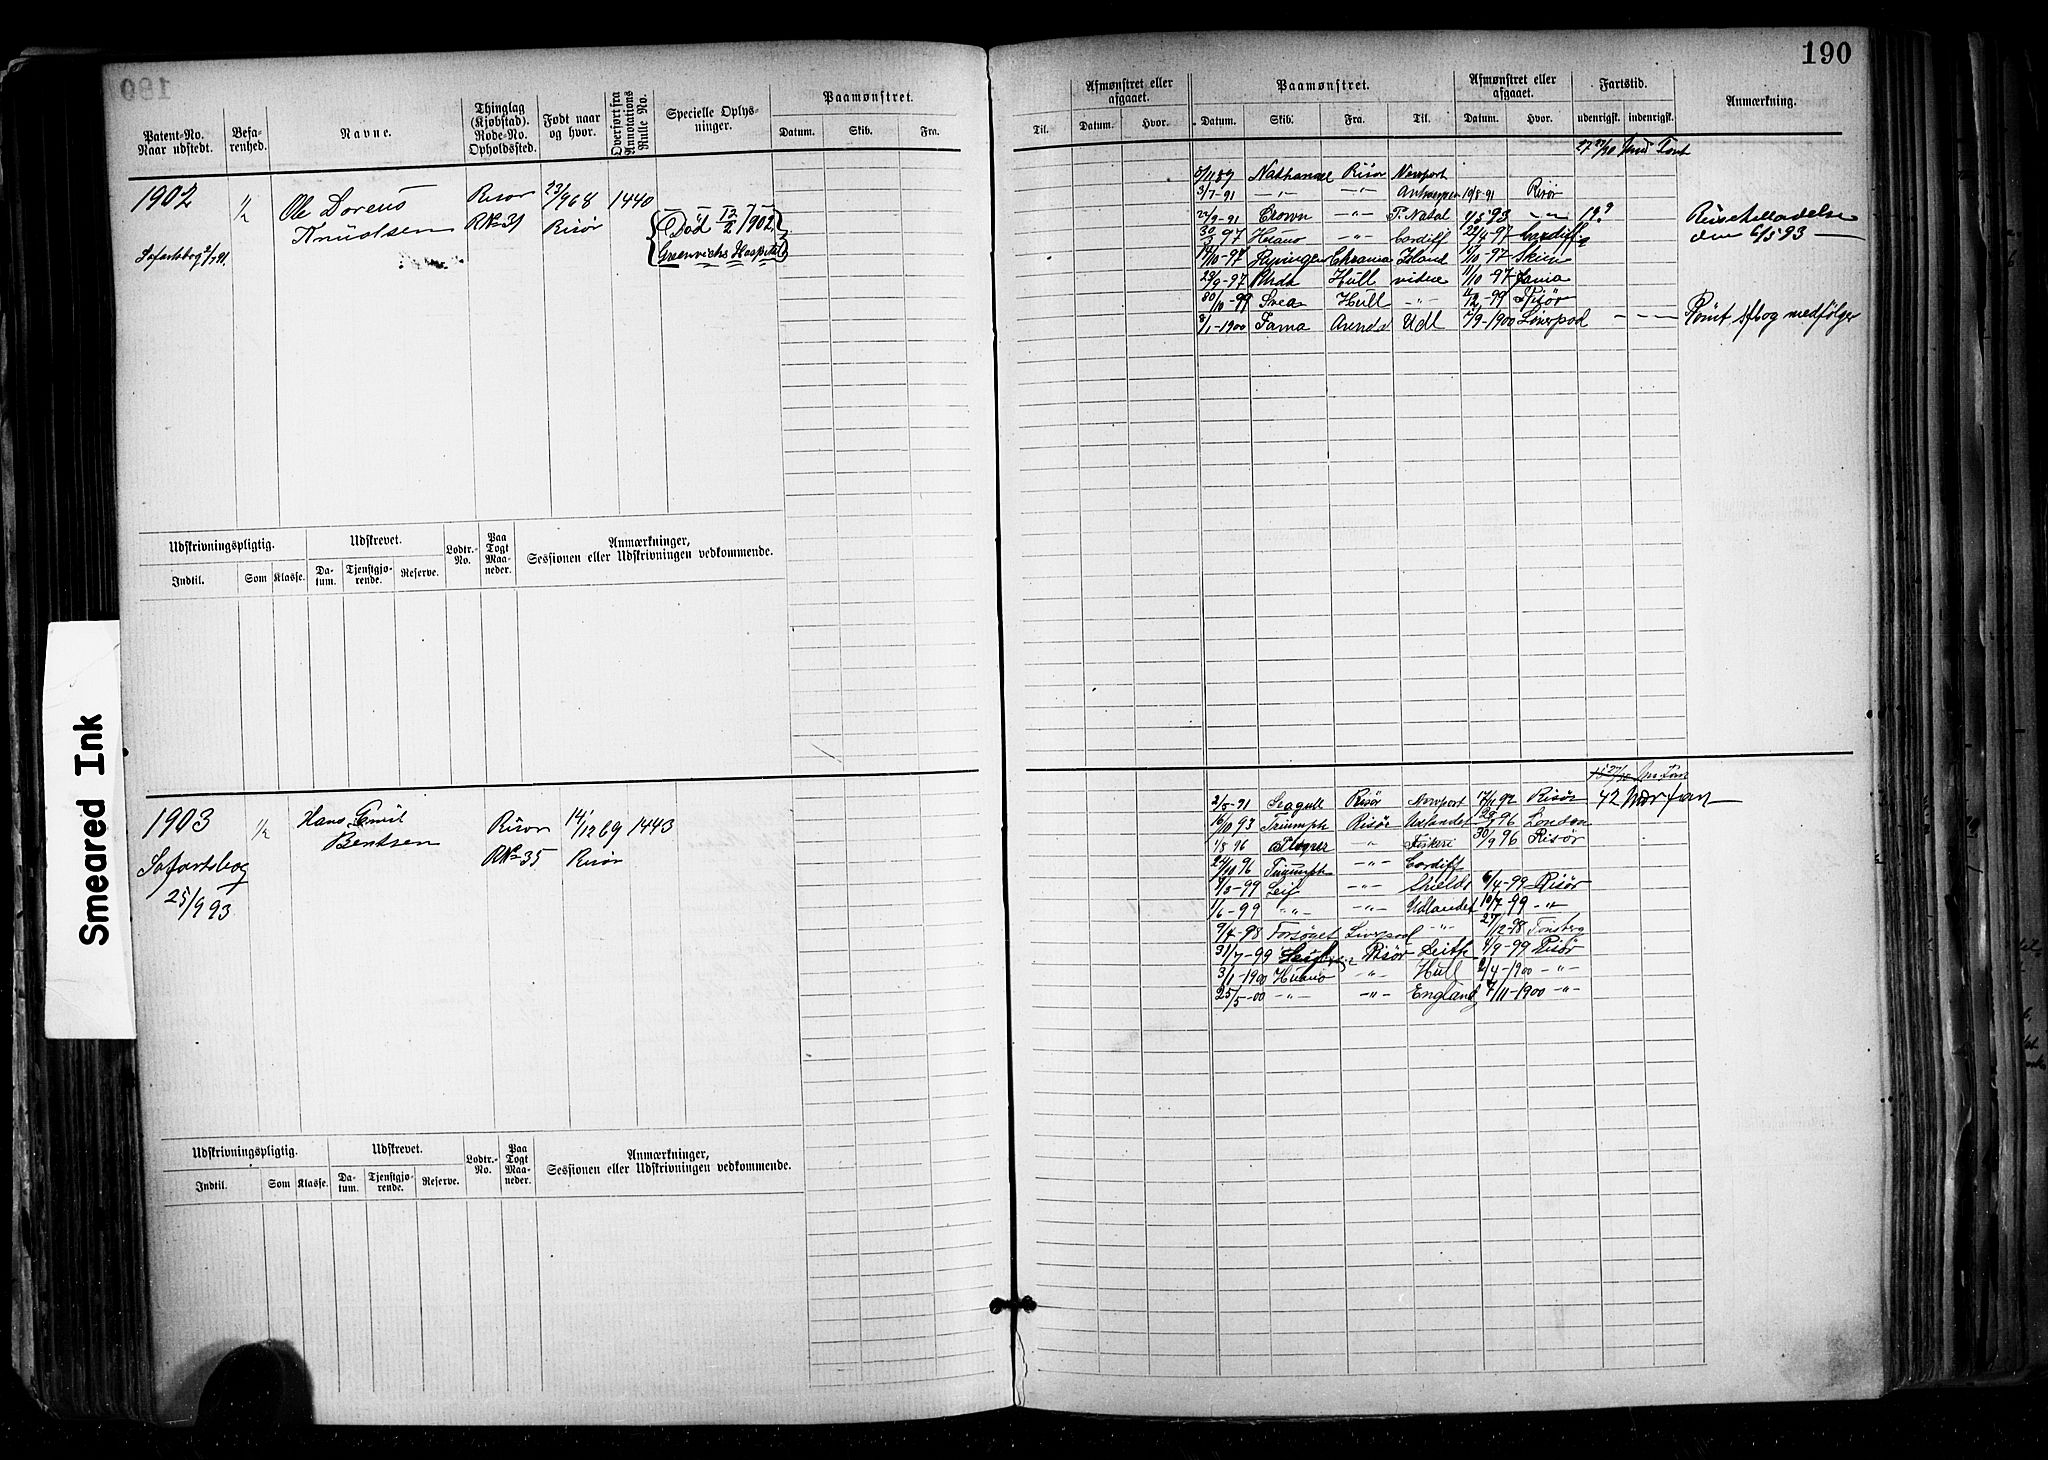 190
Patent-No. Naar udstedt.
Befarenhed.
Navne.
Thinglag (Kjøbstad). Rode-No. Opholdssted.
Født naar og hvor.
Overført fra Annotations Rulle No.
Specielle Oplysninger.
Paamønstret.
Datum. Skib. Fra.
Til.
Afmønstret eller afgaaet.
Datum. Hvor.
Paamønstret.
Datum. Skib. Fra. Til.
Afmønstret eller afgaaet.
Datum. Hvor.
Fartstid.
udenrigsk. indenrigsk.
Anmærkning.
1902 1/2 Ole Lorens Risør 23/9 68 1440
Knudsen RNo 31 Risør
Død 12/2 1902
Greenwichs Hospital
Søfartsbog 2/7 91.
5/11 89 Nathanael Risør Newport
3/7-91 -"- -"- Antwerpen 10/8-91 Risør
22/9-91 Crown -"- Pt Natal 4/5 93 -"-
30/3-97 Huano -"- Cardiff 22/4-97 Cardiff
den 6/5 93
/10-97 Chrania /10-97 Skien
23/9-97 Hull videre 11/10-97
30/10-99 Svea Hull -"- /12-99 Risør
8/1-1900 Fama Arendal Udl /9-1900 Liverpool - - -
Rømt sfbog medfølger
Udskrivningspligtig. Udskrevet. Lodtr.-No. Paa Togt Maaneder. Anmærkninger, Sessionen eller Udskrivningen vedkommende.
Indtil. Som Klasse. Datum. Tjenstgjørende. Reserve.
1903 1/2 Hans Emil Risør 14/12 69 1443
Bentsen RNo 35 Risør
Søfartsbog
25/9 93
2/8-91 Seagull Risør Newport 17/11 92 Risør 42
16/10 93 Triumph Risør Udlandet 96 London
1/8 96 -"- Fiskeri 30/9 96 Risør
24/10 96 Triumph -"- Cardiff
/3-99 Leif -"- Shields 6/4-99 Risør
1/6-99 -"- -"- Udlandet 10/7-99 -"-
9/4-98 Forsøget Liverpool -"- 27/12-98 Tønsberg
31/7-99 Risør Leith /9-99 Risør
3/1-1900 Huano -"- Hull 2/4-1900 -"-
25/5-00 -"- -"- England 7/11-1900 -"-
Udskrivningspligtig. Udskrevet. Lodtr.-No. Paa Togt Maaneder. Anmærkninger, Sessionen eller Udskrivningen vedkommende.
Indtil. Som Klasse. Datum. Tjenstgjørende. Reserve.
Smeared Ink